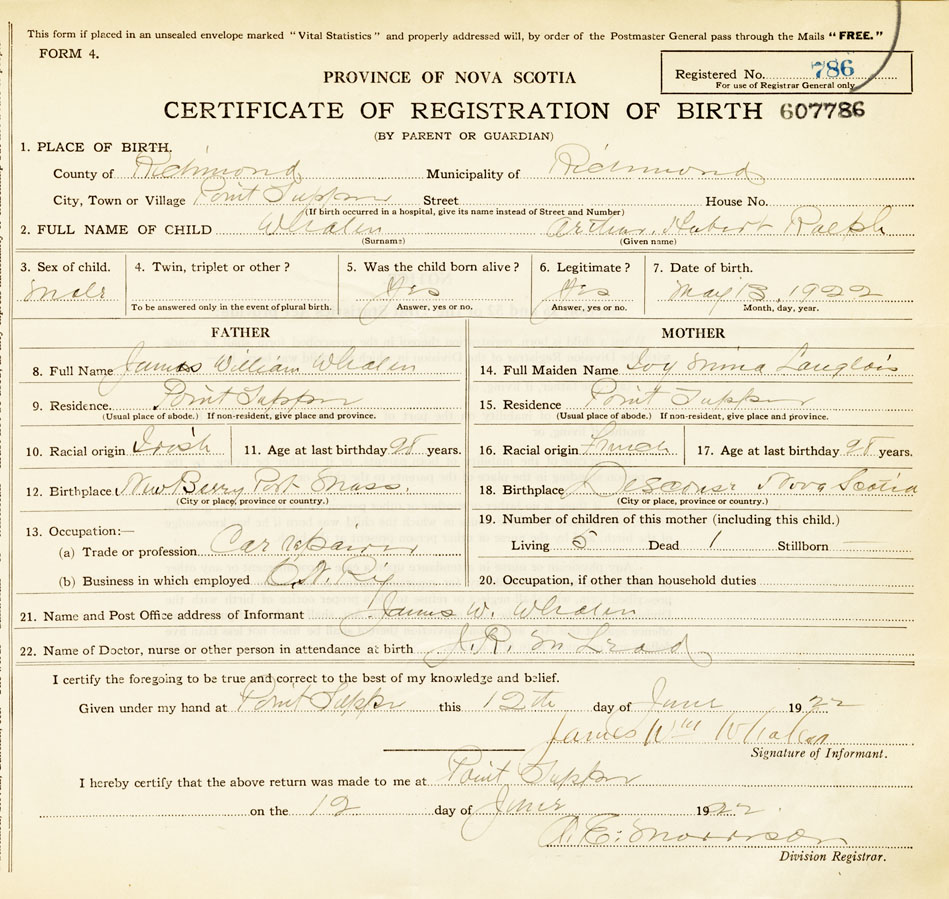 This form if placed in an unsealed envelope marked "Vital Statistics" and properly addressed will, by order of the Postmaster General pass through the Mails "FREE."
FORM 4.
Registered No. 786
For use of Registrar General only
PROVINCE OF NOVA SCOTIA
CERTIFICATE OF REGISTRATION OF BIRTH 607786
(BY PARENT OR GUARDIAN)
1. PLACE OF BIRTH.
County of Richmond Municipality of Richmond
City, Town or Village Point Tupper Street House No.
(If birth occurred in a hospital, give its name instead of Street and Number)
2. FULL NAME OF CHILD Whalen Arthur Hubert Ralph
(Surname) (Given name)
3. Sex of child. 4. Twin, triplet or other? 5. Was the child born alive? 6. Legitimate? 7. Date of birth.
Male Yes Yes May 13, 1922
To be answered only in the event of plural birth. Answer, yes or no. Answer, yes or no. Month, day, year.
FATHER MOTHER
8. Full Name James William Whalen
14. Full Maiden Name Ivy Mina Langlois
9. Residence. Point Tupper
15. Residence Point Tupper
(Usual place of abode.) If non-resident, give place and province.
(Usual place of abode.) If non-resident, give place and province.
10. Racial origin Irish 11. Age at last birthday 28 years.
16. Racial origin French 17. Age at last birthday 28 years.
12. Birthplace New Berry Port Mass.
(City or place, province or country.)
18. Birthplace Descouse Nova Scotia
(City or place, province or country.)
13. Occupation:—
19. Number of children of this mother (including this child.)
(a) Trade or profession Car repairer
Living 5 Dead 1 Stillborn —
(b) Business in which employed C.N. Rly
20. Occupation, if other than household duties
21. Name and Post Office address of Informant James W. Whalen
22. Name of Doctor, nurse or other person in attendance at birth J.R. McLeod
I certify the foregoing to be true and correct to the best of my knowledge and belief.
Given under my hand at Point Tupper this 12th day of June 1922
James Wm Whalen
Signature of Informant.
I hereby certify that the above return was made to me at Point Tupper
on the 12 day of June 1922
Morrison
Division Registrar.